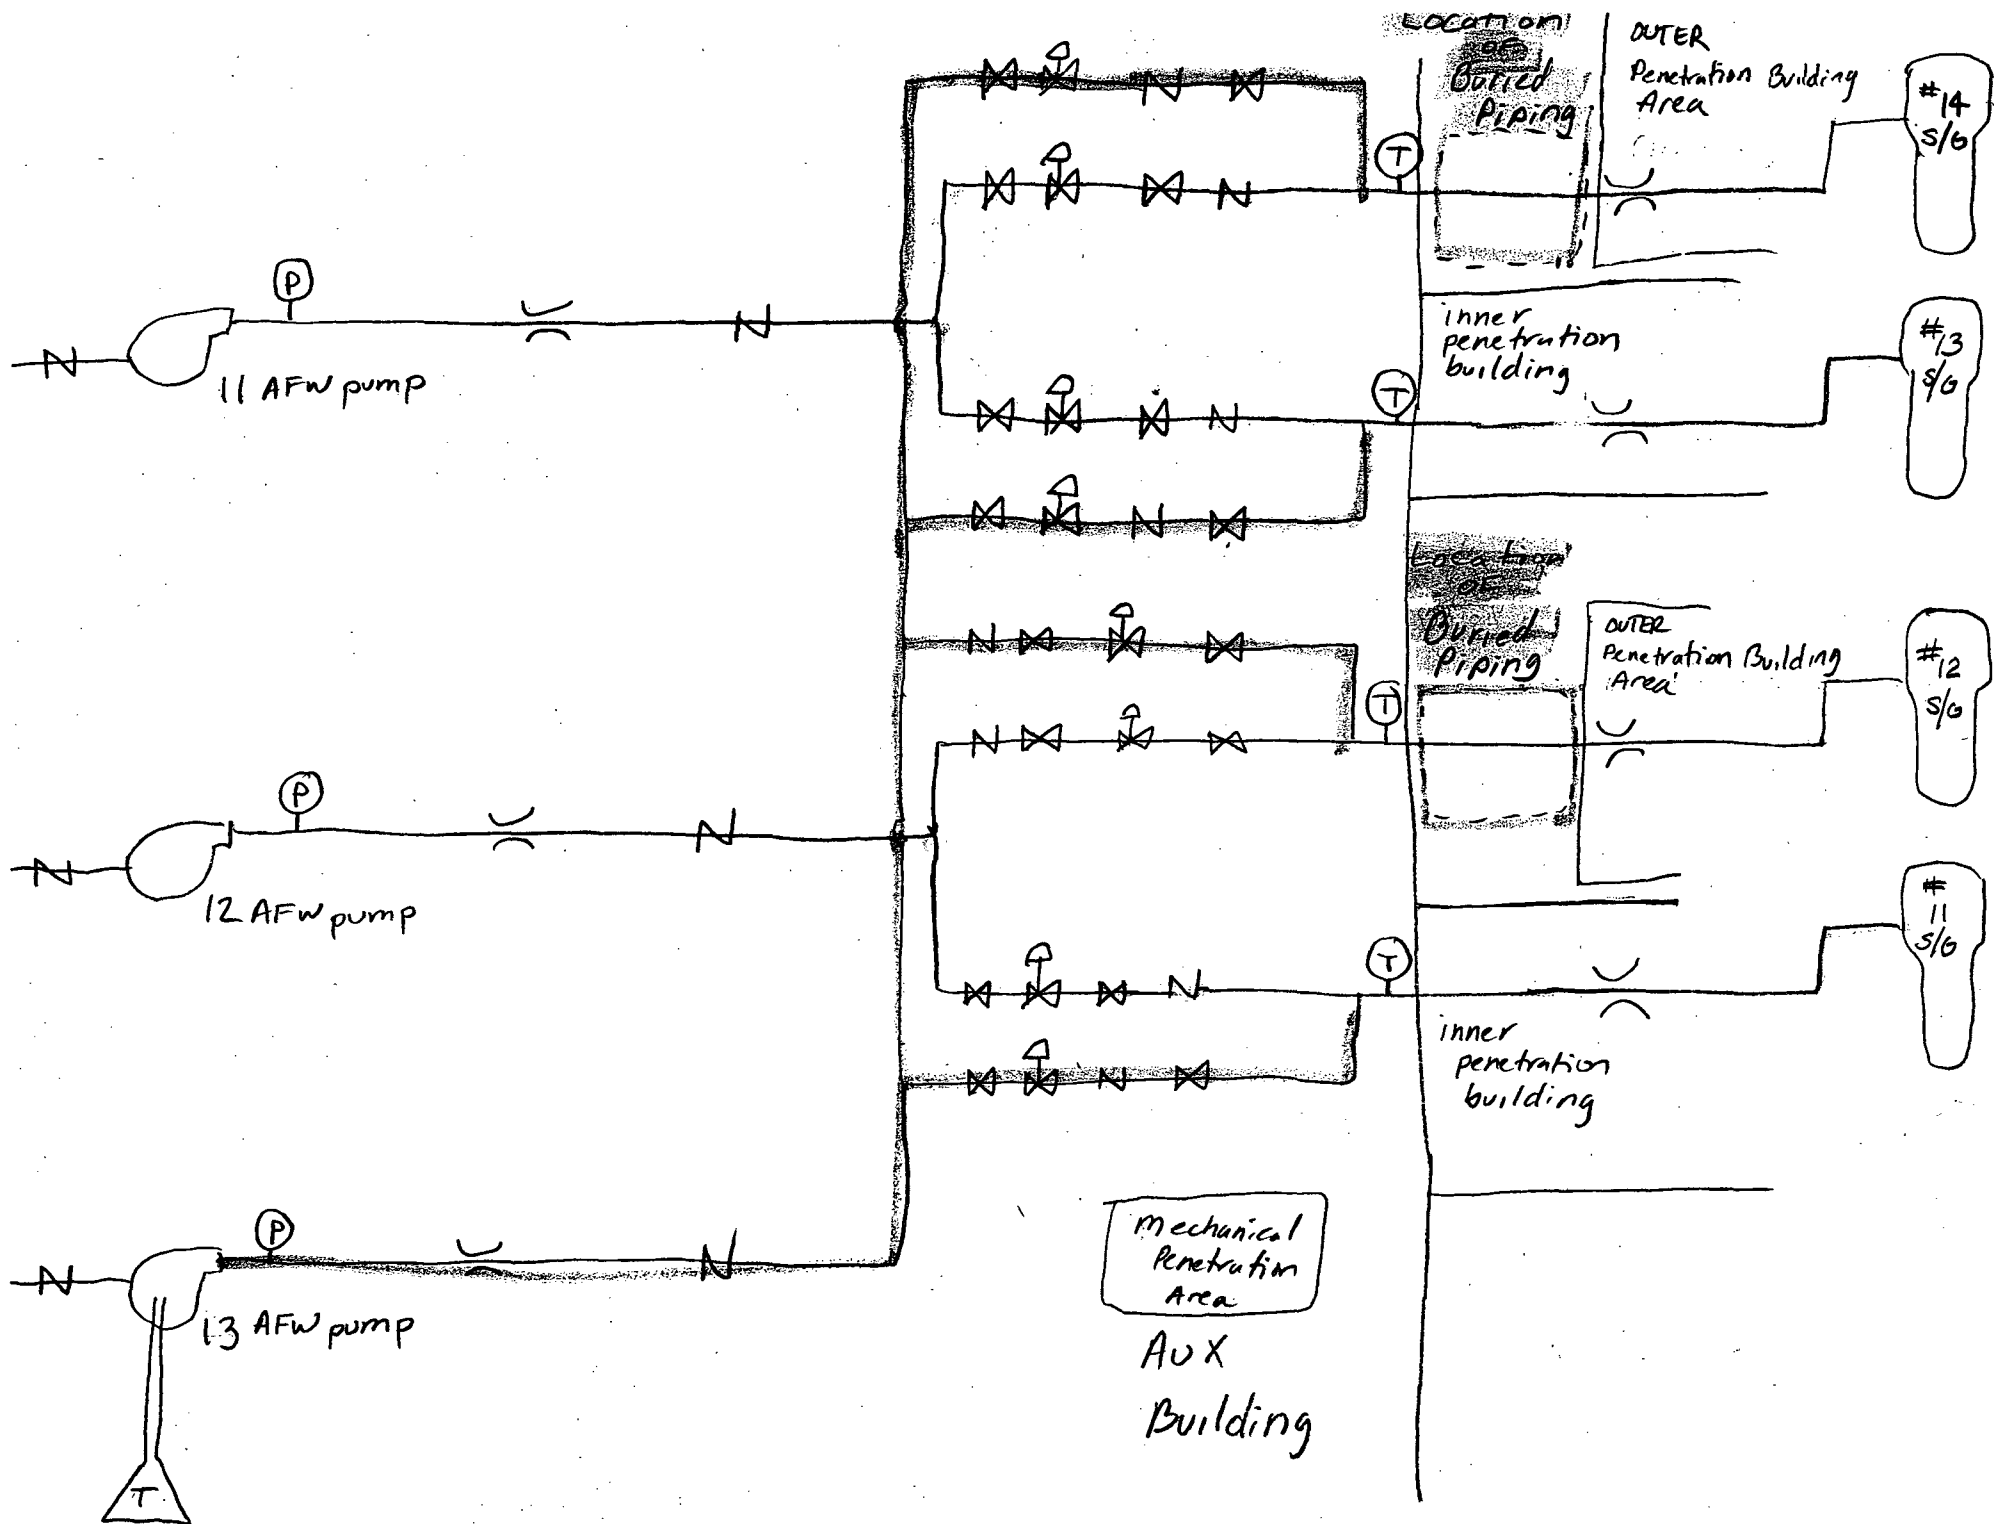 Location
of
Buried
Piping
OUTER
Penetration Building
Area
#14
S/G
T
P
11 AFW pump
inner
penetration
building
T
#13
S/G
Location
of
Buried
Piping
OUTER
Penetration Building
Area
#12
S/G
T
P
12 AFW pump
#
11
S/G
T
inner
penetration
building
P
13 AFW pump
T
Mechanical
Penetration
Area
Aux
Building